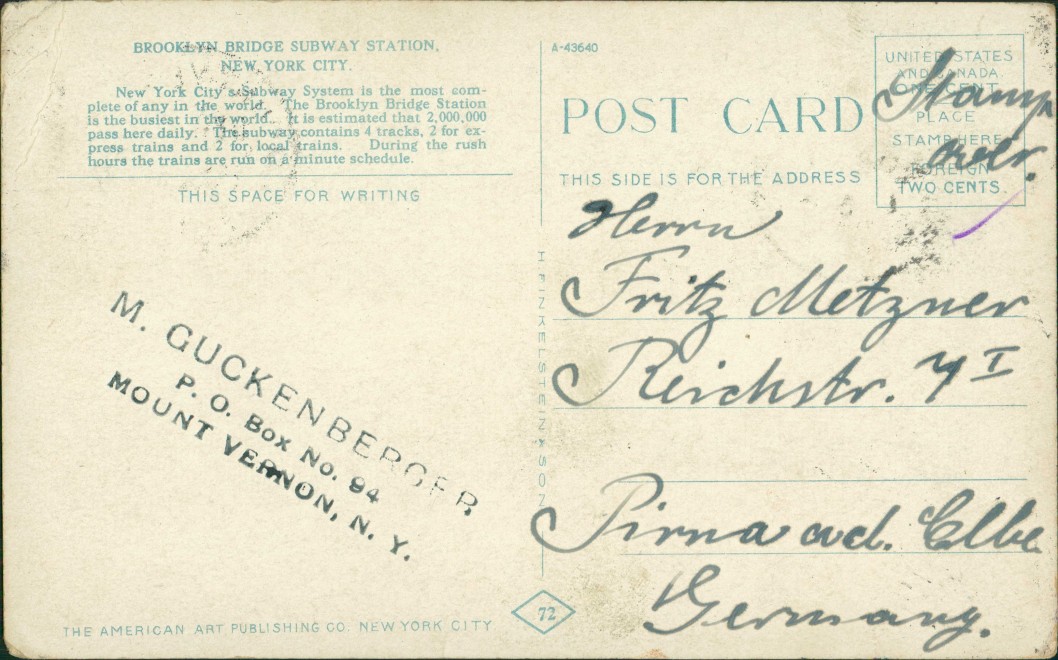 BROOKLYN BRIDGE SUBWAY STATION,
NEW YORK CITY.
New York City's Subway System is the most com-
plete of any in the world. The Brooklyn Bridge Station
is the busiest in the world. It is estimated that 2,000,000
pass here daily. The subway contains 4 tracks, 2 for ex-
press trains and 2 for local trains. During the rush
hours the trains are run on a minute schedule.
THIS SPACE FOR WRITING
M. GUCKENBERGER
P. O. Box No. 94
MOUNT VERNON, N. Y.
THE AMERICAN ART PUBLISHING CO. NEW YORK CITY
H FINKELSTEIN & SON
72
A-43640
POST CARD
THIS SIDE IS FOR THE ADDRESS
UNITED STATES
AND CANADA
ONE CENT
PLACE
STAMP HERE
FOREIGN
TWO CENTS.
Stamp
Herrn
Fritz Metzner
Reichstr. 4 I
Pirna a/d. Elbe
Germany.